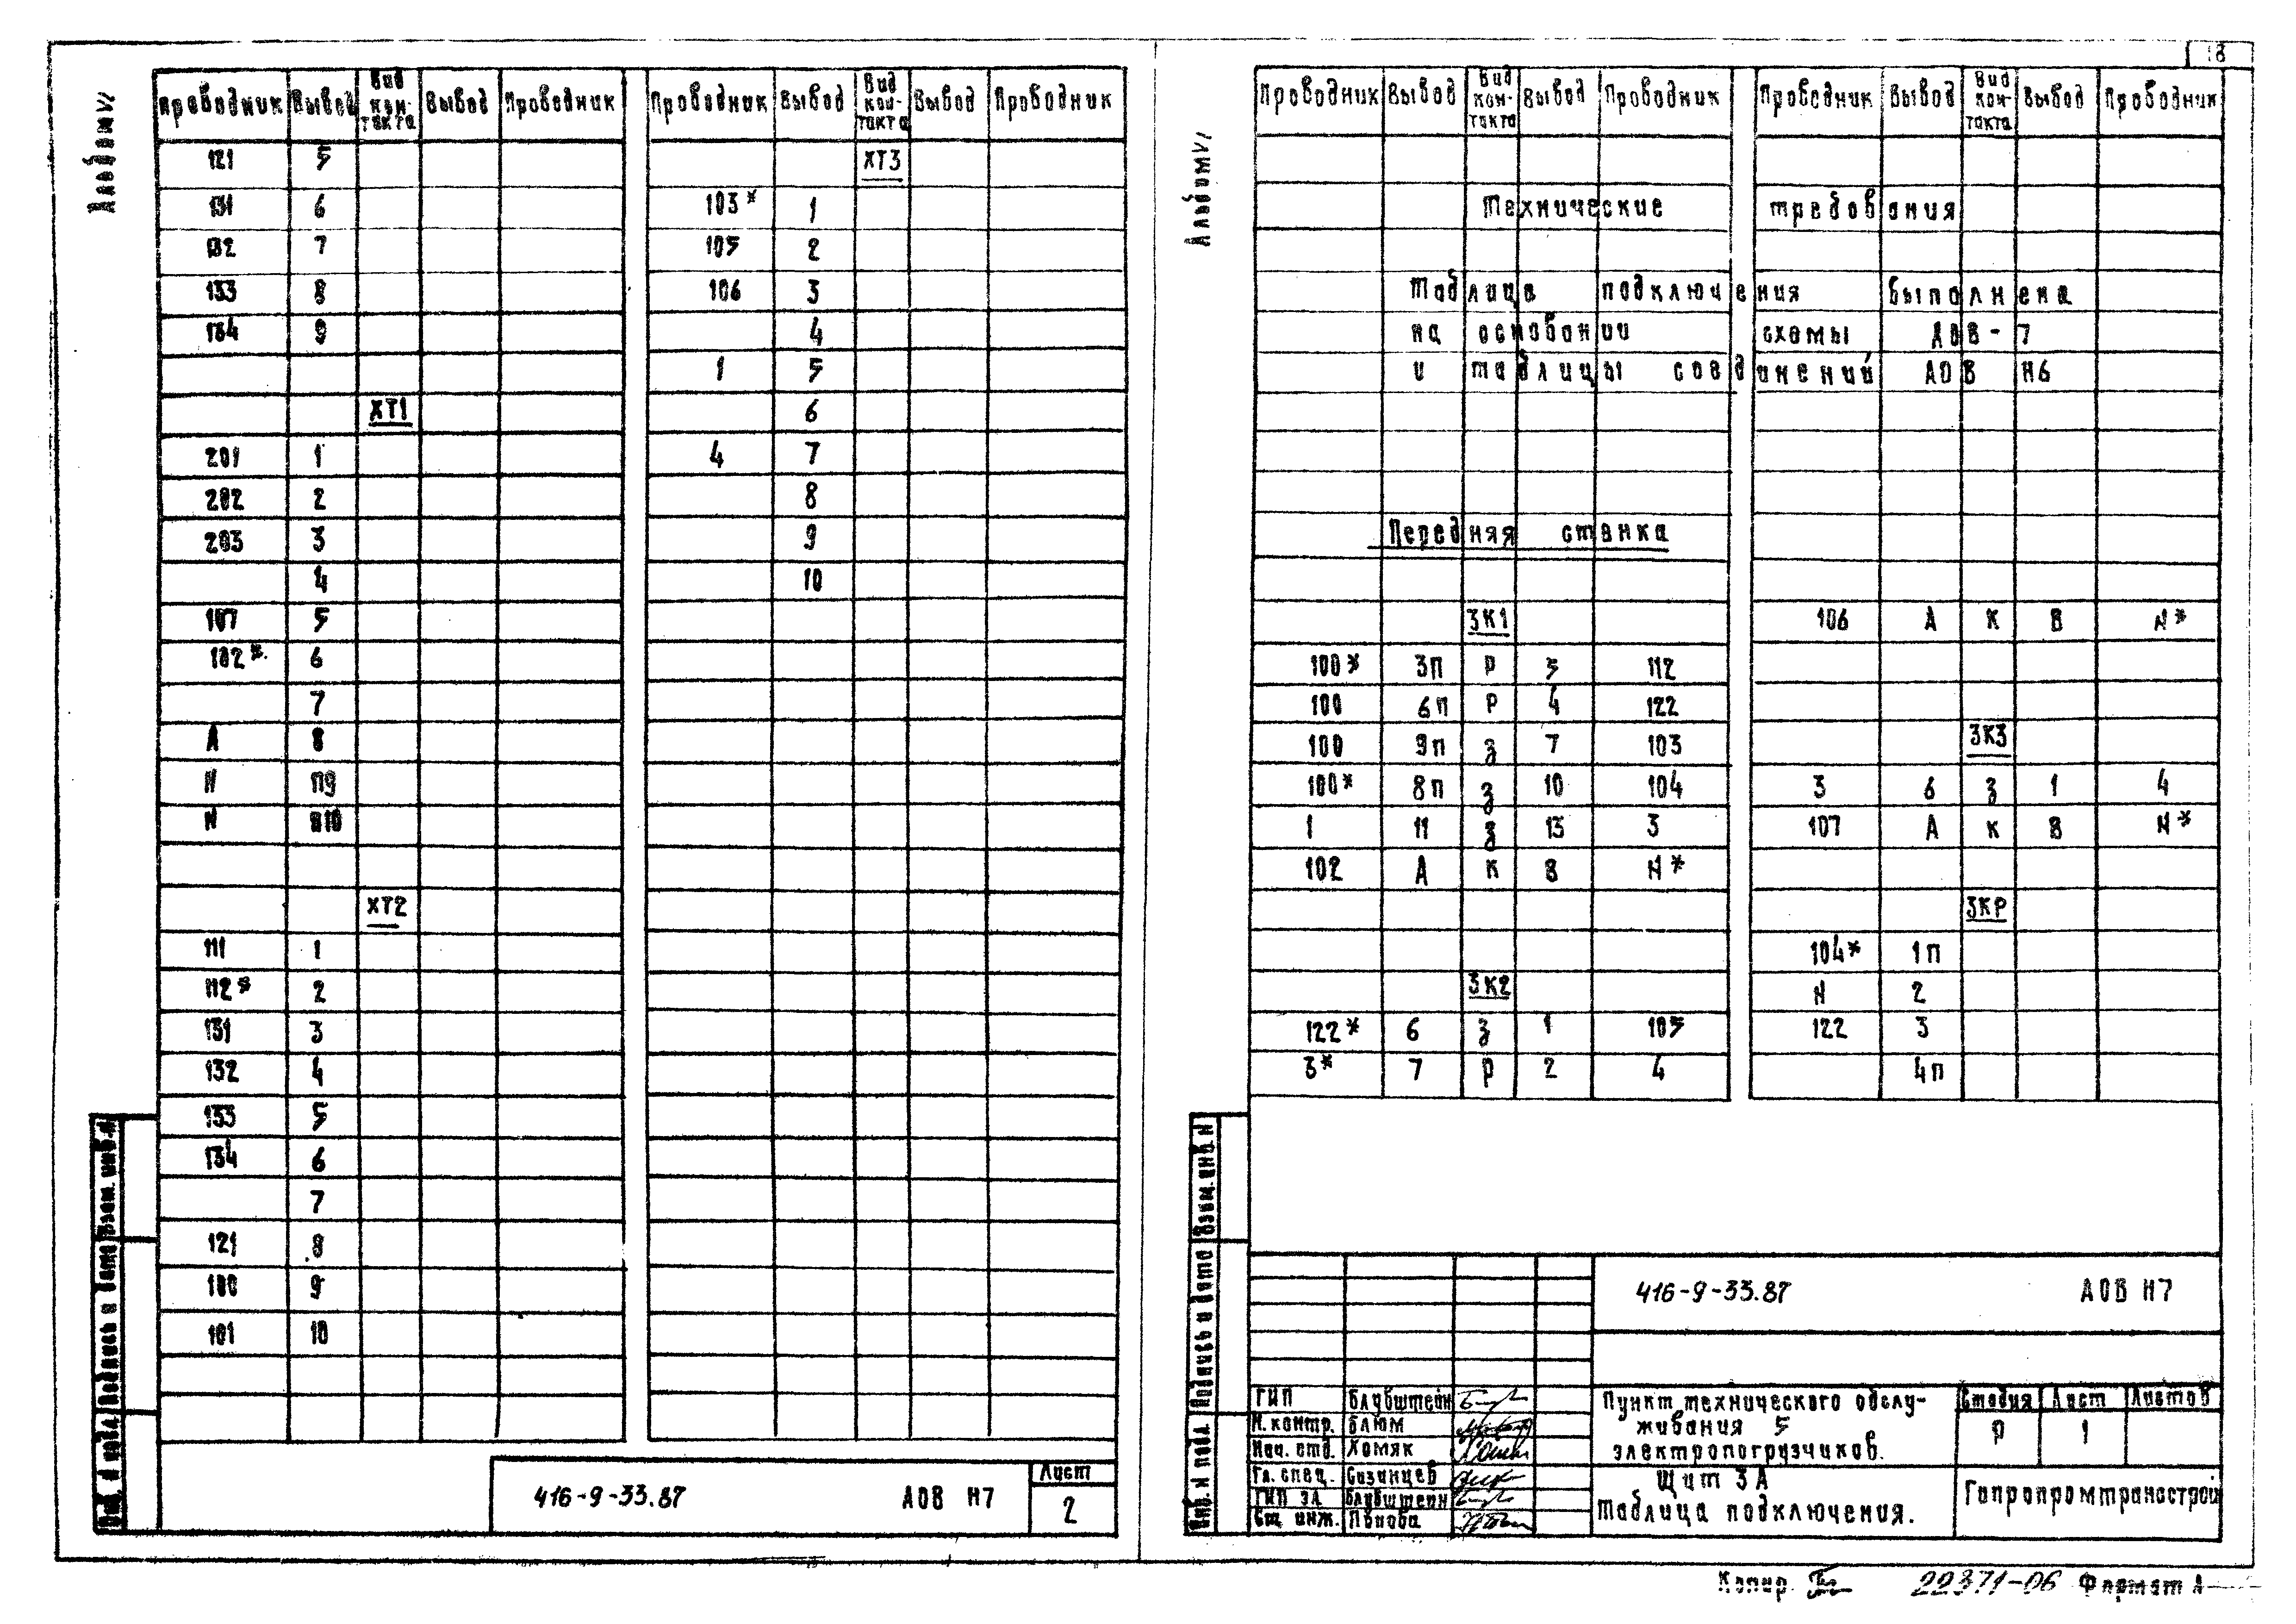 18
Альбом VI
Проводник Вывод Вид кон-такта Вывод Проводник Проводник Вывод Вид кон-такта Вывод Проводник
121 5 ХТ3
131 6 103* 1
132 7 105 2
133 8 106 3
134 9 4
1 5
ХТ1 6
201 1 4 7
202 2 8
203 3 9
4 10
107 5
102* 6
7
А 8
N П9
N П10
ХТ2
111 1
112* 2
131 3
132 4
133 5
134 6
7
121 8
100 9
101 10
Взам. инв. N
Подпись и дата
Инв. N подл.
416-9-33.87 АОВ Н7
Лист
2
Альбом VI
Проводник Вывод Вид кон-такта Вывод Проводник Проводник Вывод Вид кон-такта Вывод Проводник
Технические требования
Таблица подключения выполнена
на основании схемы АОВ-7
и таблицы соединений АОВ Н6
Передняя стенка
3К1 106 А К В N*
100* 3П Р 5 112
100 6П Р 4 122
100 9П З 7 103 3К3
100* 8П З 10 104 3 6 З 1 4
1 11 З 13 3 107 А К В N*
102 А К В N*
3КР
104* 1П
3К2 N 2
122* 6 З 1 105 122 3
3* 7 Р 2 4 4П
Взам. инв. N
Подпись и дата
Инв. N подл.
416-9-33.87 АОВ Н7
ГИП Блувштейн
Н. контр. Блюм
Нач. отд. Хомяк
Гл. спец. Сизинцев
ГИП ЗА Блувштейн
Ст. инж.
Пункт технического обслу-
живания 5
электропогрузчиков.
Стадия Лист Листов
Р 1
Щит 3А
Таблица подключения.
Гипропромтрансстрой
Копир. 22371-06 Формат А